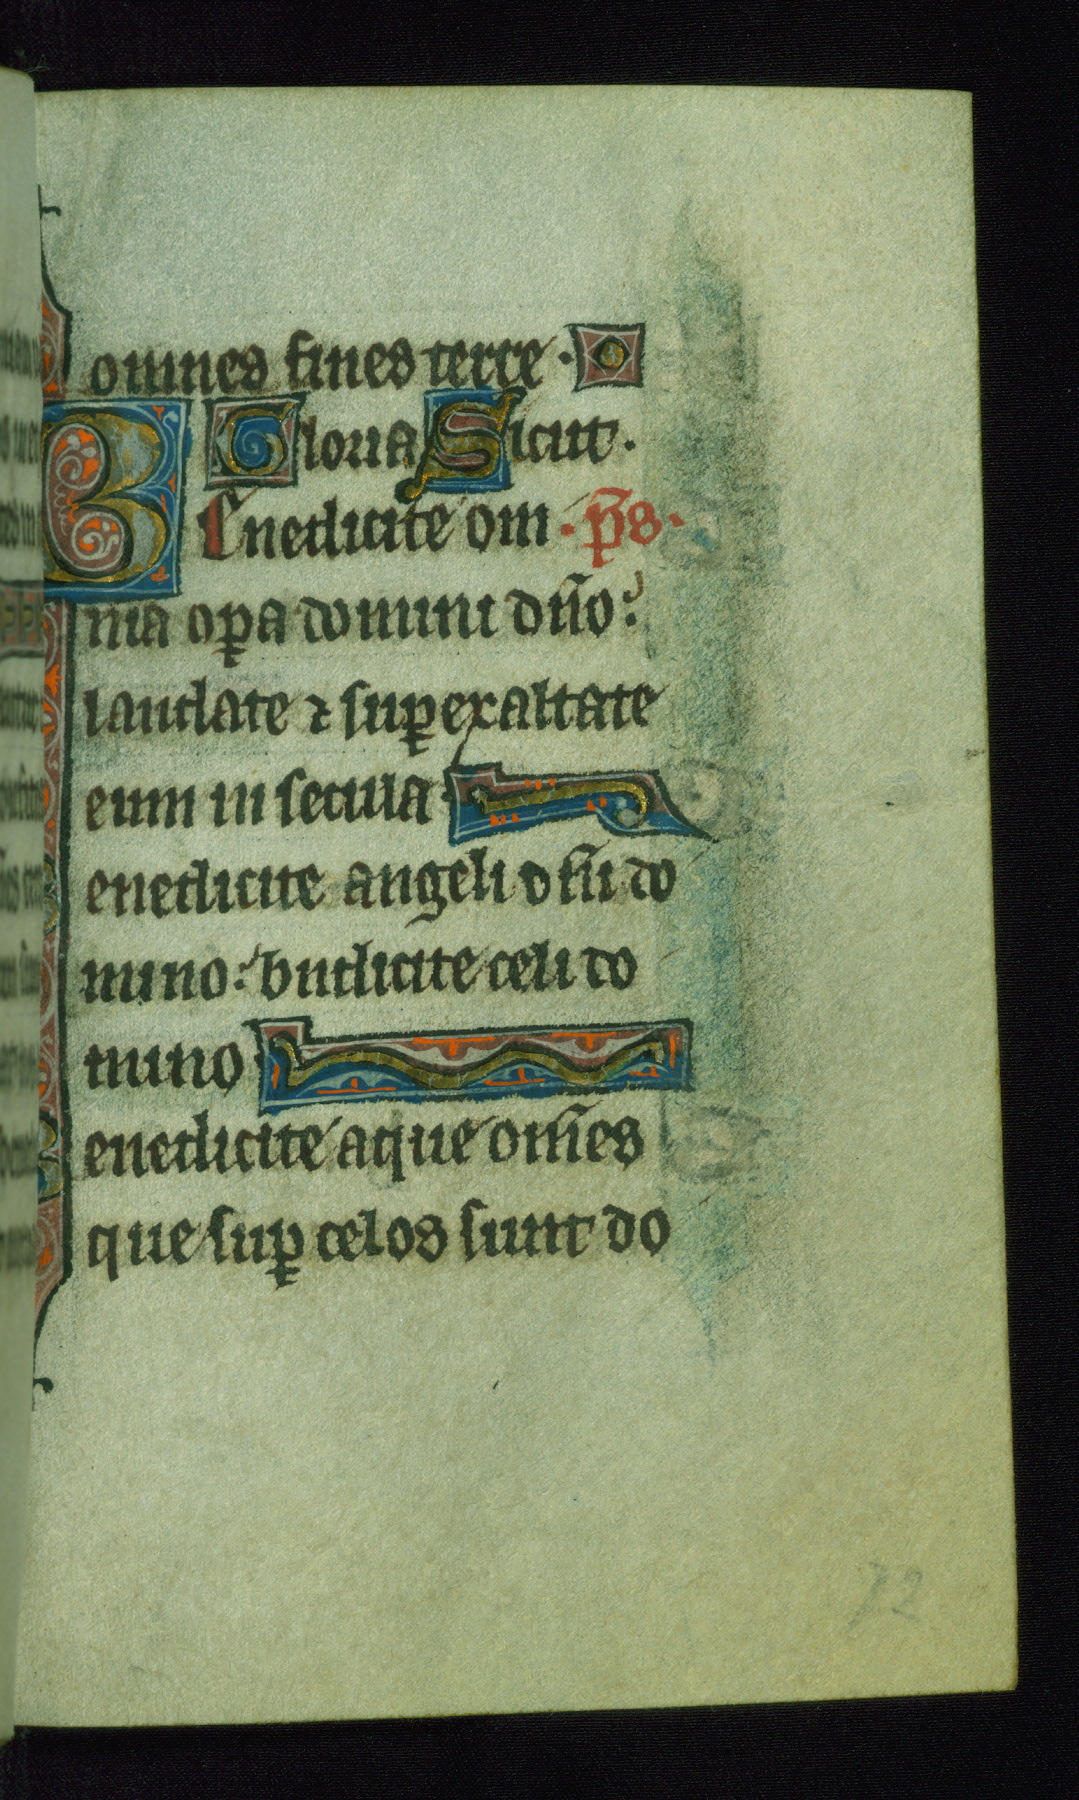 omnes fines terre ·
Gloria Sicut ·
Benedicite om · p̄s ·
nia oꝑa domini dn̄o :
laudate ⁊ suꝑexaltate
eum in secula ·
enedicite angeli dn̄i do
mino : bn̄dicite celi do
mino ·
enedicite aque omēs
que suꝑ celos sunt do
72